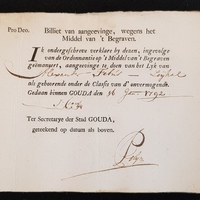 Pro Deo. Billiet van aangeevinge, wegens het
Middel van 't Begraven.
Ik ondergeschreve verklare by deezen, ingevolge
van de Ordonnantie op 't Middel van 't Begraven
geëmaneert, aangeevinge te doen van het Lyk van
als gehoorende onder de Classis van d' onvermogende.
Gedaan binnen GOUDA den 16 1792
Ter Secretarye der Stad GOUDA,
geteekend op datum als boven.